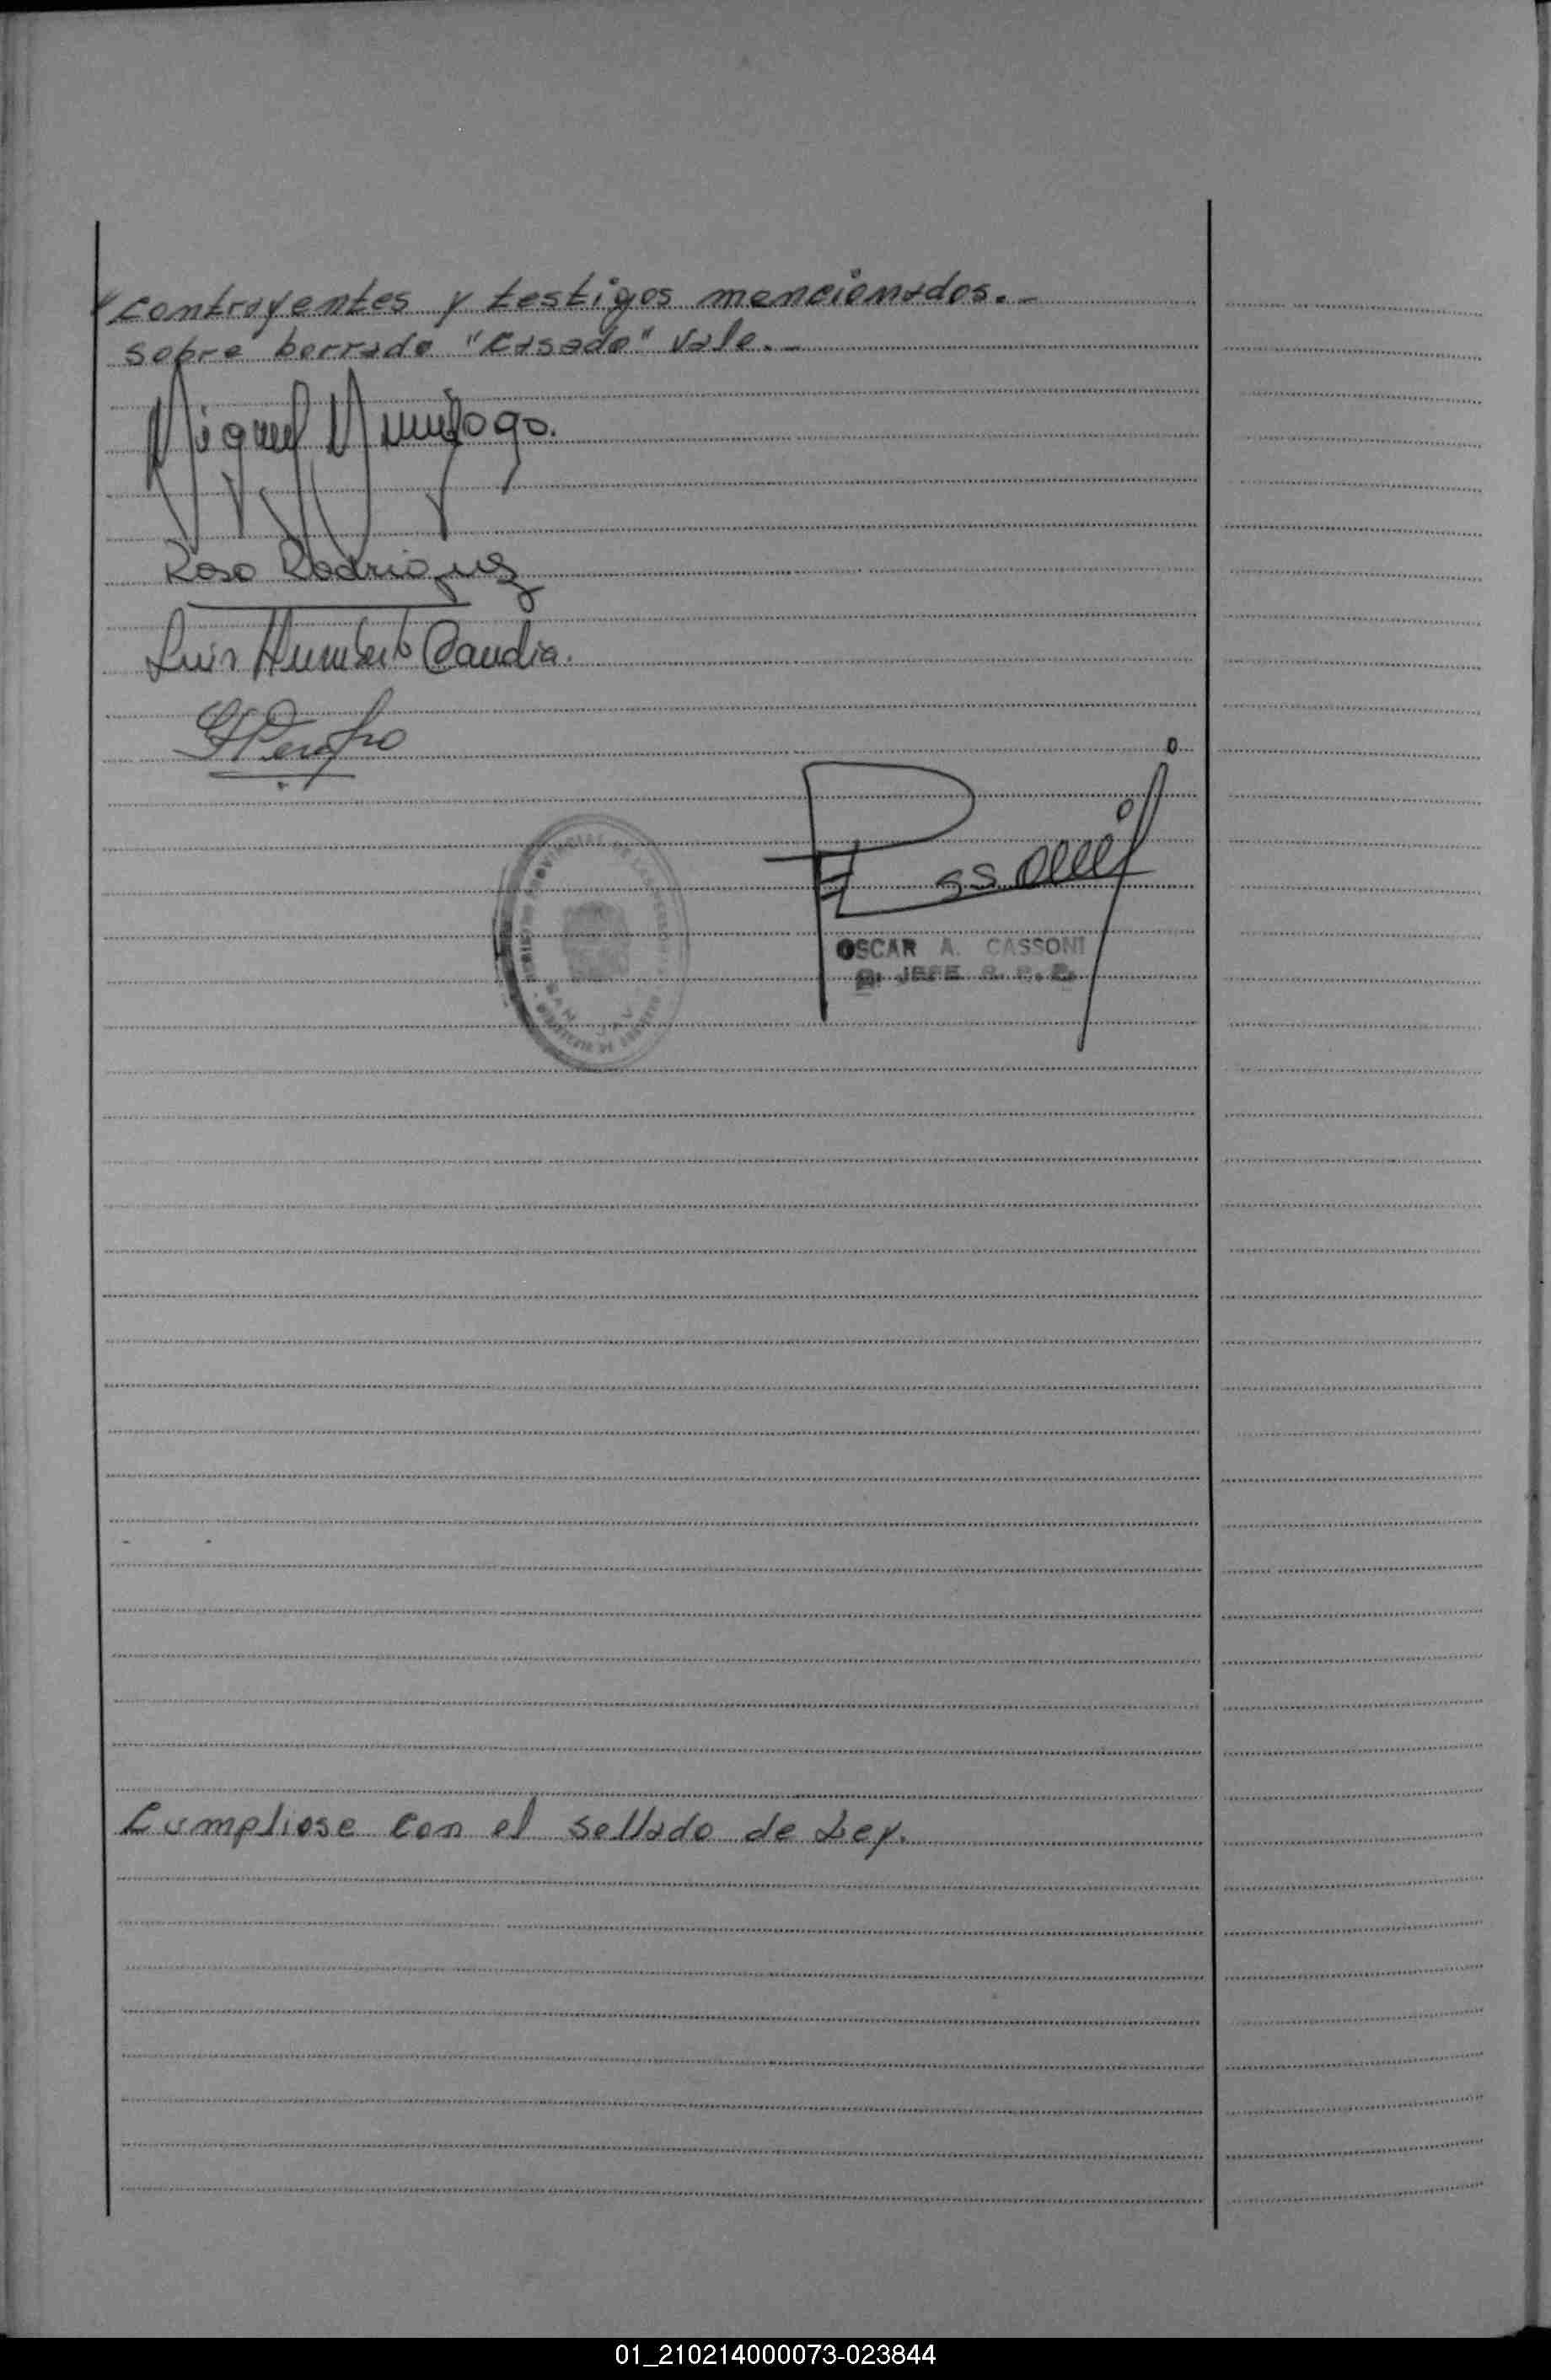 contrayentes y testigos mencionados.-
sobre borrado "Casado" Vale.-
Miguel
Rosa Rodriguez
Luis Humberto Candia.
OSCAR A. CASSONI
JEFE R. P. P.
Cumpliose con el sellado de Ley.
01_210214000073-023844